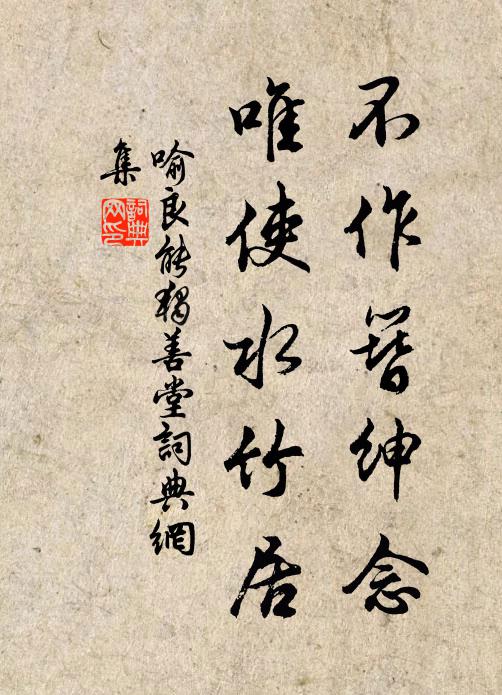 不作簪紳念
唯使水竹居
喻良能獨善堂詞典網
集
詞典网印